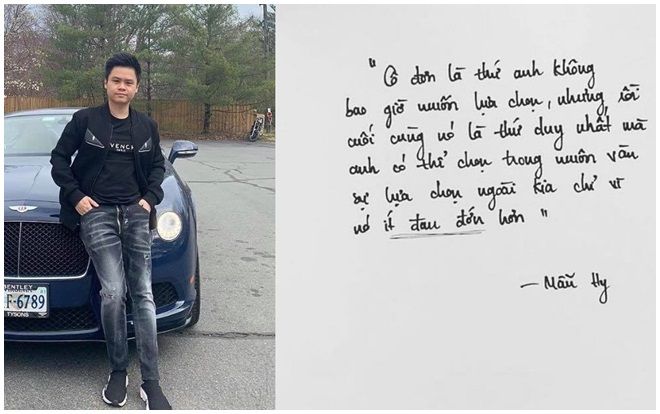 GIVENCHY
BENTLEY
F-6789
TYSONS
"Cô đơn là thứ anh không
bao giờ muốn lựa chọn, nhưng, rồi
cuối cùng nó là thứ duy nhất mà
anh có thể chọn trong muôn vàn
sự lựa chọn ngoài kia chỉ vì
nó ít đau đớn hơn"
— Mẫu Hy